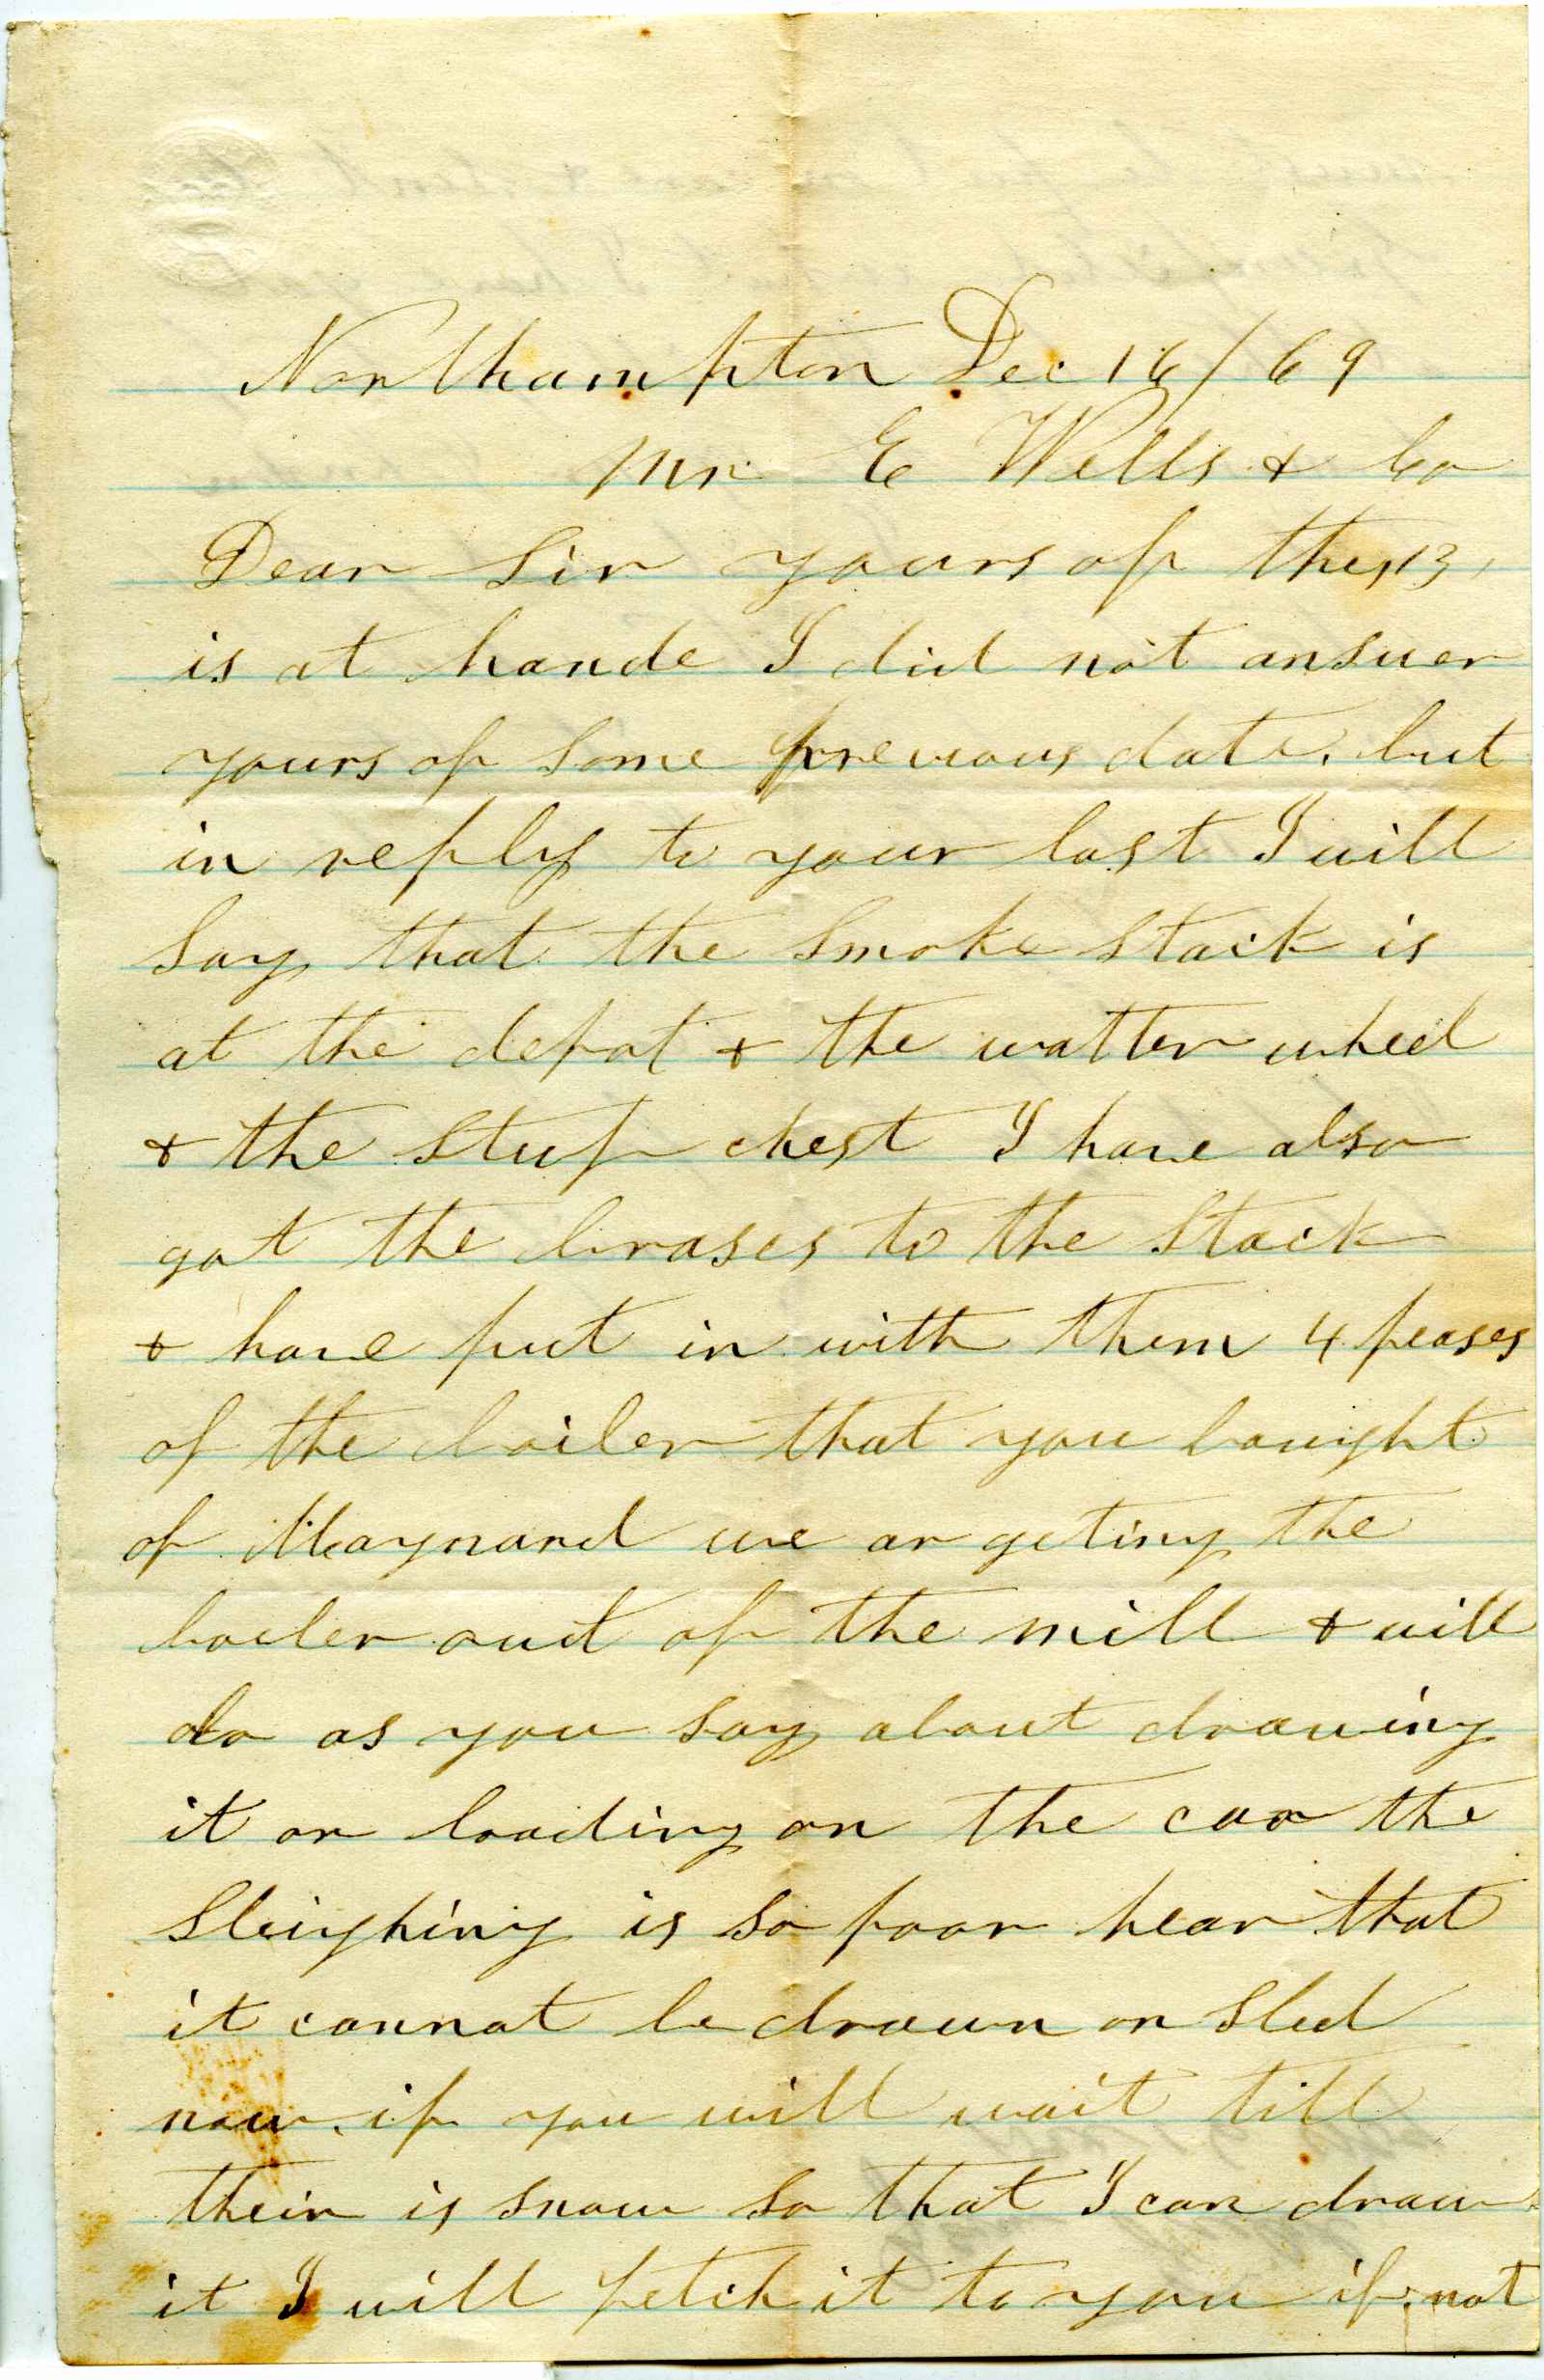 Northampton Dec 16/69
Mr E Wells & Co
Dear Sir yours of the 13,
is at hande I did not answer
yours of some prevous date. but
in reply to your last I will
Say that the Smoke Stack is
at the depot & the watter wheel
& the Stuf chest I have also
got the brases to the Stack
& have put in with them 4 peases
of the boiler that you bought
of Maynard we ar geting the
boiler out of the mill & will
do as you say about drawing
it or loading on the car the
Sleighing is so poor hear that
it connot be drawn on Sled
now. if you will wait till
their is snow so that I can draw
it I will fetch it to you if not